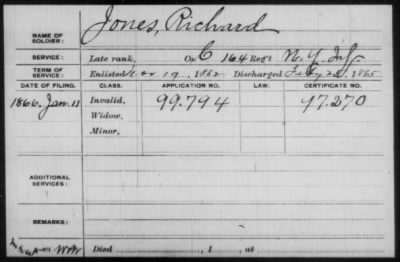 NAME OF SOLDIER: Jones, Richard
SERVICE: Late rank, Co. C 164 Reg't N.Y. Inf.
TERM OF SERVICE: Enlisted 19, 1862 Discharged 1865.
DATE OF FILING. CLASS. APPLICATION NO. LAW. CERTIFICATE NO.
1866. Jan. 11 Invalid, 99.794 97.270
Widow,
Minor,
ADDITIONAL SERVICES:
REMARKS:
Died , 1 , at